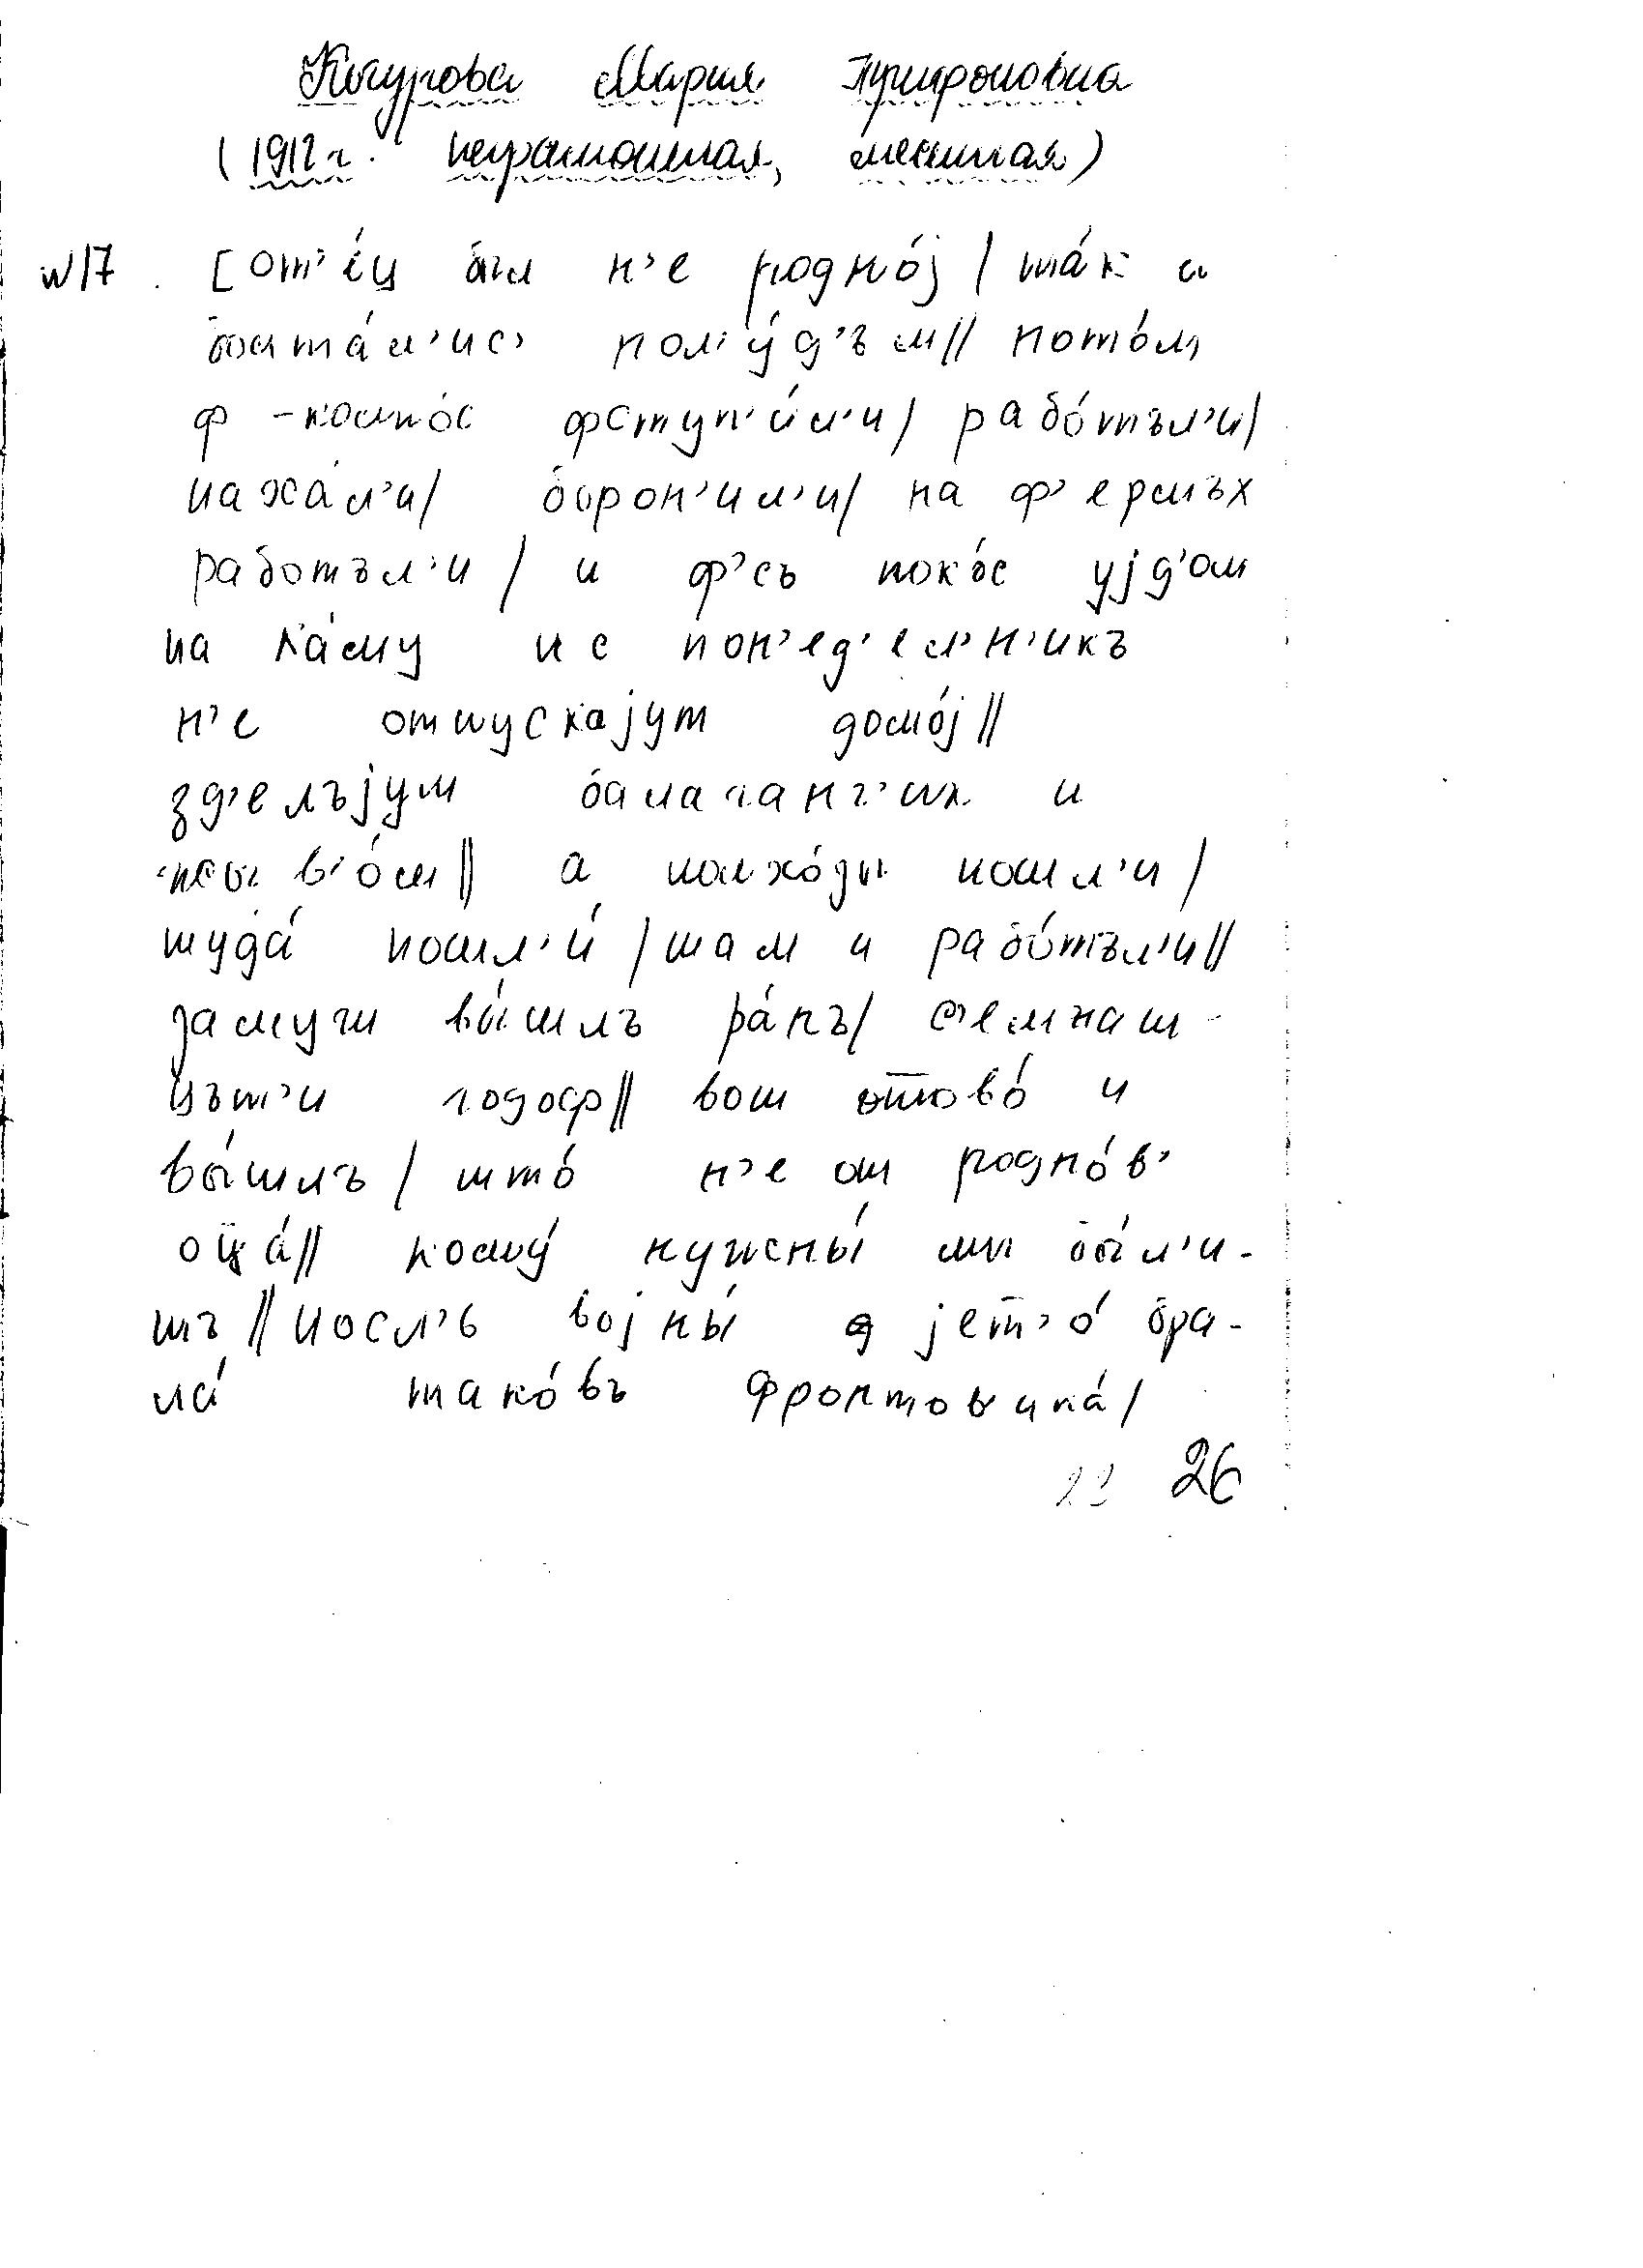 Кочурова Мария Трифоновна
(1912 г. неграмотная, местная)
№17. [от'е́ц был н'е родно́j / та́к и
болта́л'ис' пол'у́д'ъм // пото́м
ф-колхо́с фступ'и́л'и / рабо́тъл'и /
пахáл'и / борон'ил'и / на ф'ермъх
работъл'и / и ф'съ поко́с уjд'ом
на ка́му и с пон'ед'ел'н'икъ
н'е отпускаjут домо́j //
зд'елъjут балаганг'их и
жыв'о́м // а колхо́зы пошл'и /
туда́ пошл'и́ / там и рабо́тъл'и //
замуш вы́шлъ ра́нъ / с'емнат-
цът'и годоф // вот отово́ и
вы́шлъ / што́ н'е от родно́въ
оца́ // кому́ нужны́ мы бы́л'и-
тъ // посл'ъ воjны́ я jет'о́ бра-
ла́ тако́въ фронтовика́ /
26